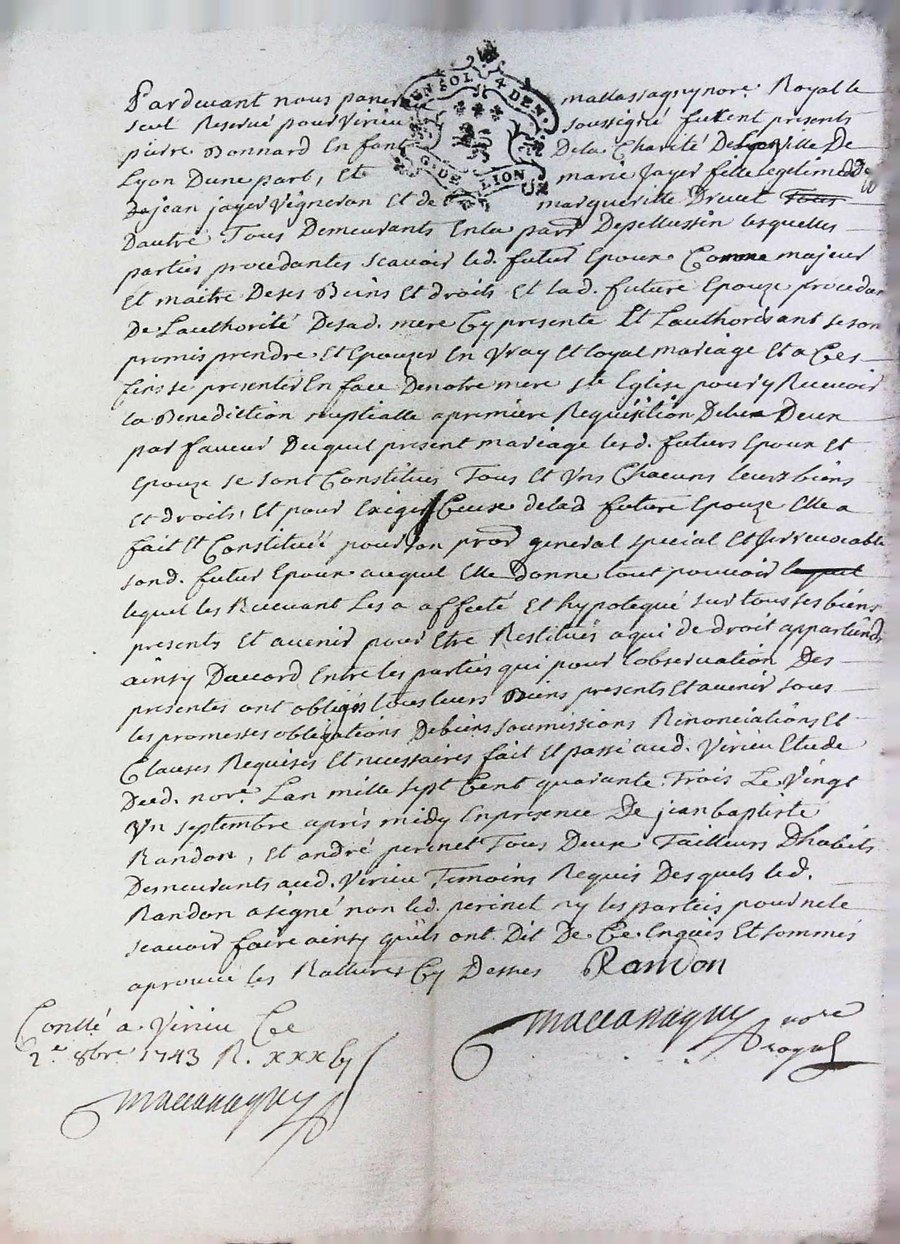 UN SOL 4 DEN.
G. DE LION
Pardevant nous maccassagny nore. Royal le
seul Reservé pour Virieu soussigné furent presents
pierre Bonnard Enfant Dela Charité Delaville De
Lyon Dune part, Et marie Jayer fille legitime De
Dejean jayer Vigneron Et de margueritte Drevet tous
Dautre Tous Demeurants Enla parr Depellussin lesquelles
parties procedantes scavoir led. futur Epoux Comme majeur
Et maitre Deses Biens Et droits Et lad. future Epouze procedan
De Lauthorité Desad. mere Cy presente Et Lauthorisant se son
promis prendre Et Epouzer En Vray Et loyal mariage Et a Ces
fins se presenter En face Denotre mere ste Eglise pour y Recevoir
la Benediction nuptialle a premiere Requisition Delun Deux
par faveur Duquel present mariage lesd. futurs Epoux Et
Epouze se sont Constitués Tous Et Uns Chacuns leurs biens
Et droits, Et pour Exiger Ceux delad future Epouze Elle a
fait Et Constitué pour son procr general special Et Jrrevocable
sond. futur Epoux auquel Elle donne tout pouvoir
lequel les Recevant Les a affecté Et hypotequé sur tous ses biens
presents Et avenir pour Etre Restitués a qui de droit appartiendr
ainsy Daccord Entre les parties qui pour lobservation Des
presentes ont obligés tous leurs Biens presents Et avenir sous
les promesses obligations Debiens soumissions Renonciations Et
Clauses Requises Et necessaires fait Et passé aud. Virieu Etude
Deed. nore. Lan mille sept Cent quarante Trois Le Vingt
Un septembre après midy Enpresence De jean baptiste
Randon, Et andré perinet Tous Deux Tailleurs Dhabits
Demeurants aud. Virieu Temoins Requis Desquels led.
Randon a signé non led. perinet ny les parteis pour nele
scavoir faire ainsy quils ont Dit De Ce Enquis Et sommés
aprouve les Rattures Cy Desses Randon
maccassagny nore
royal
Conllé a Virieu Ce
2e. 8bre 1743 R. xxx ls
maccassagny